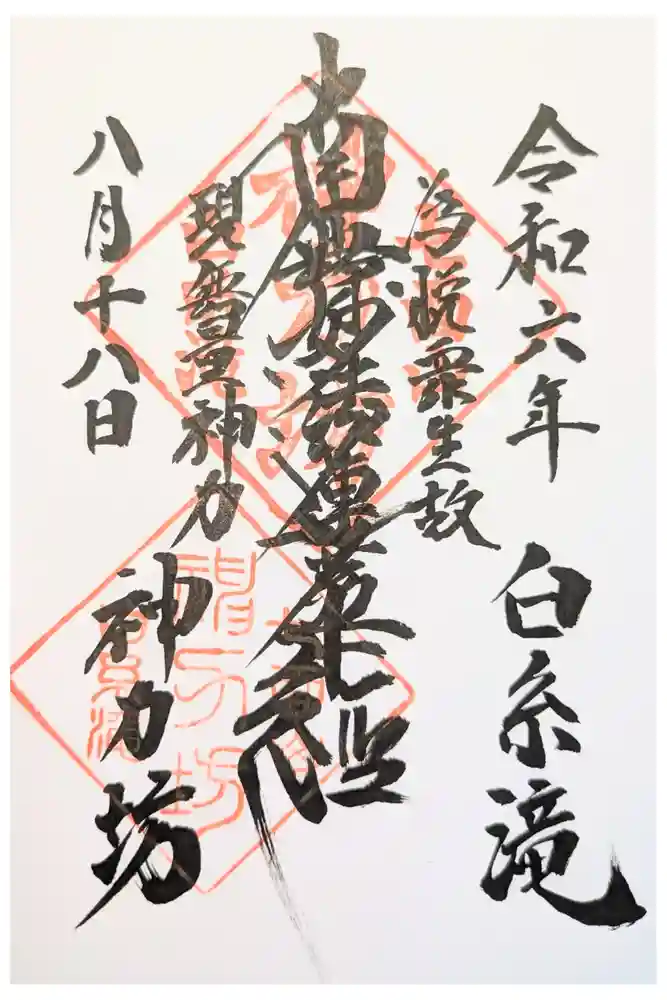 令和六年
白糸滝
為悦衆生故
南無妙法蓮華経
現無量神力
神力坊
八月十八日